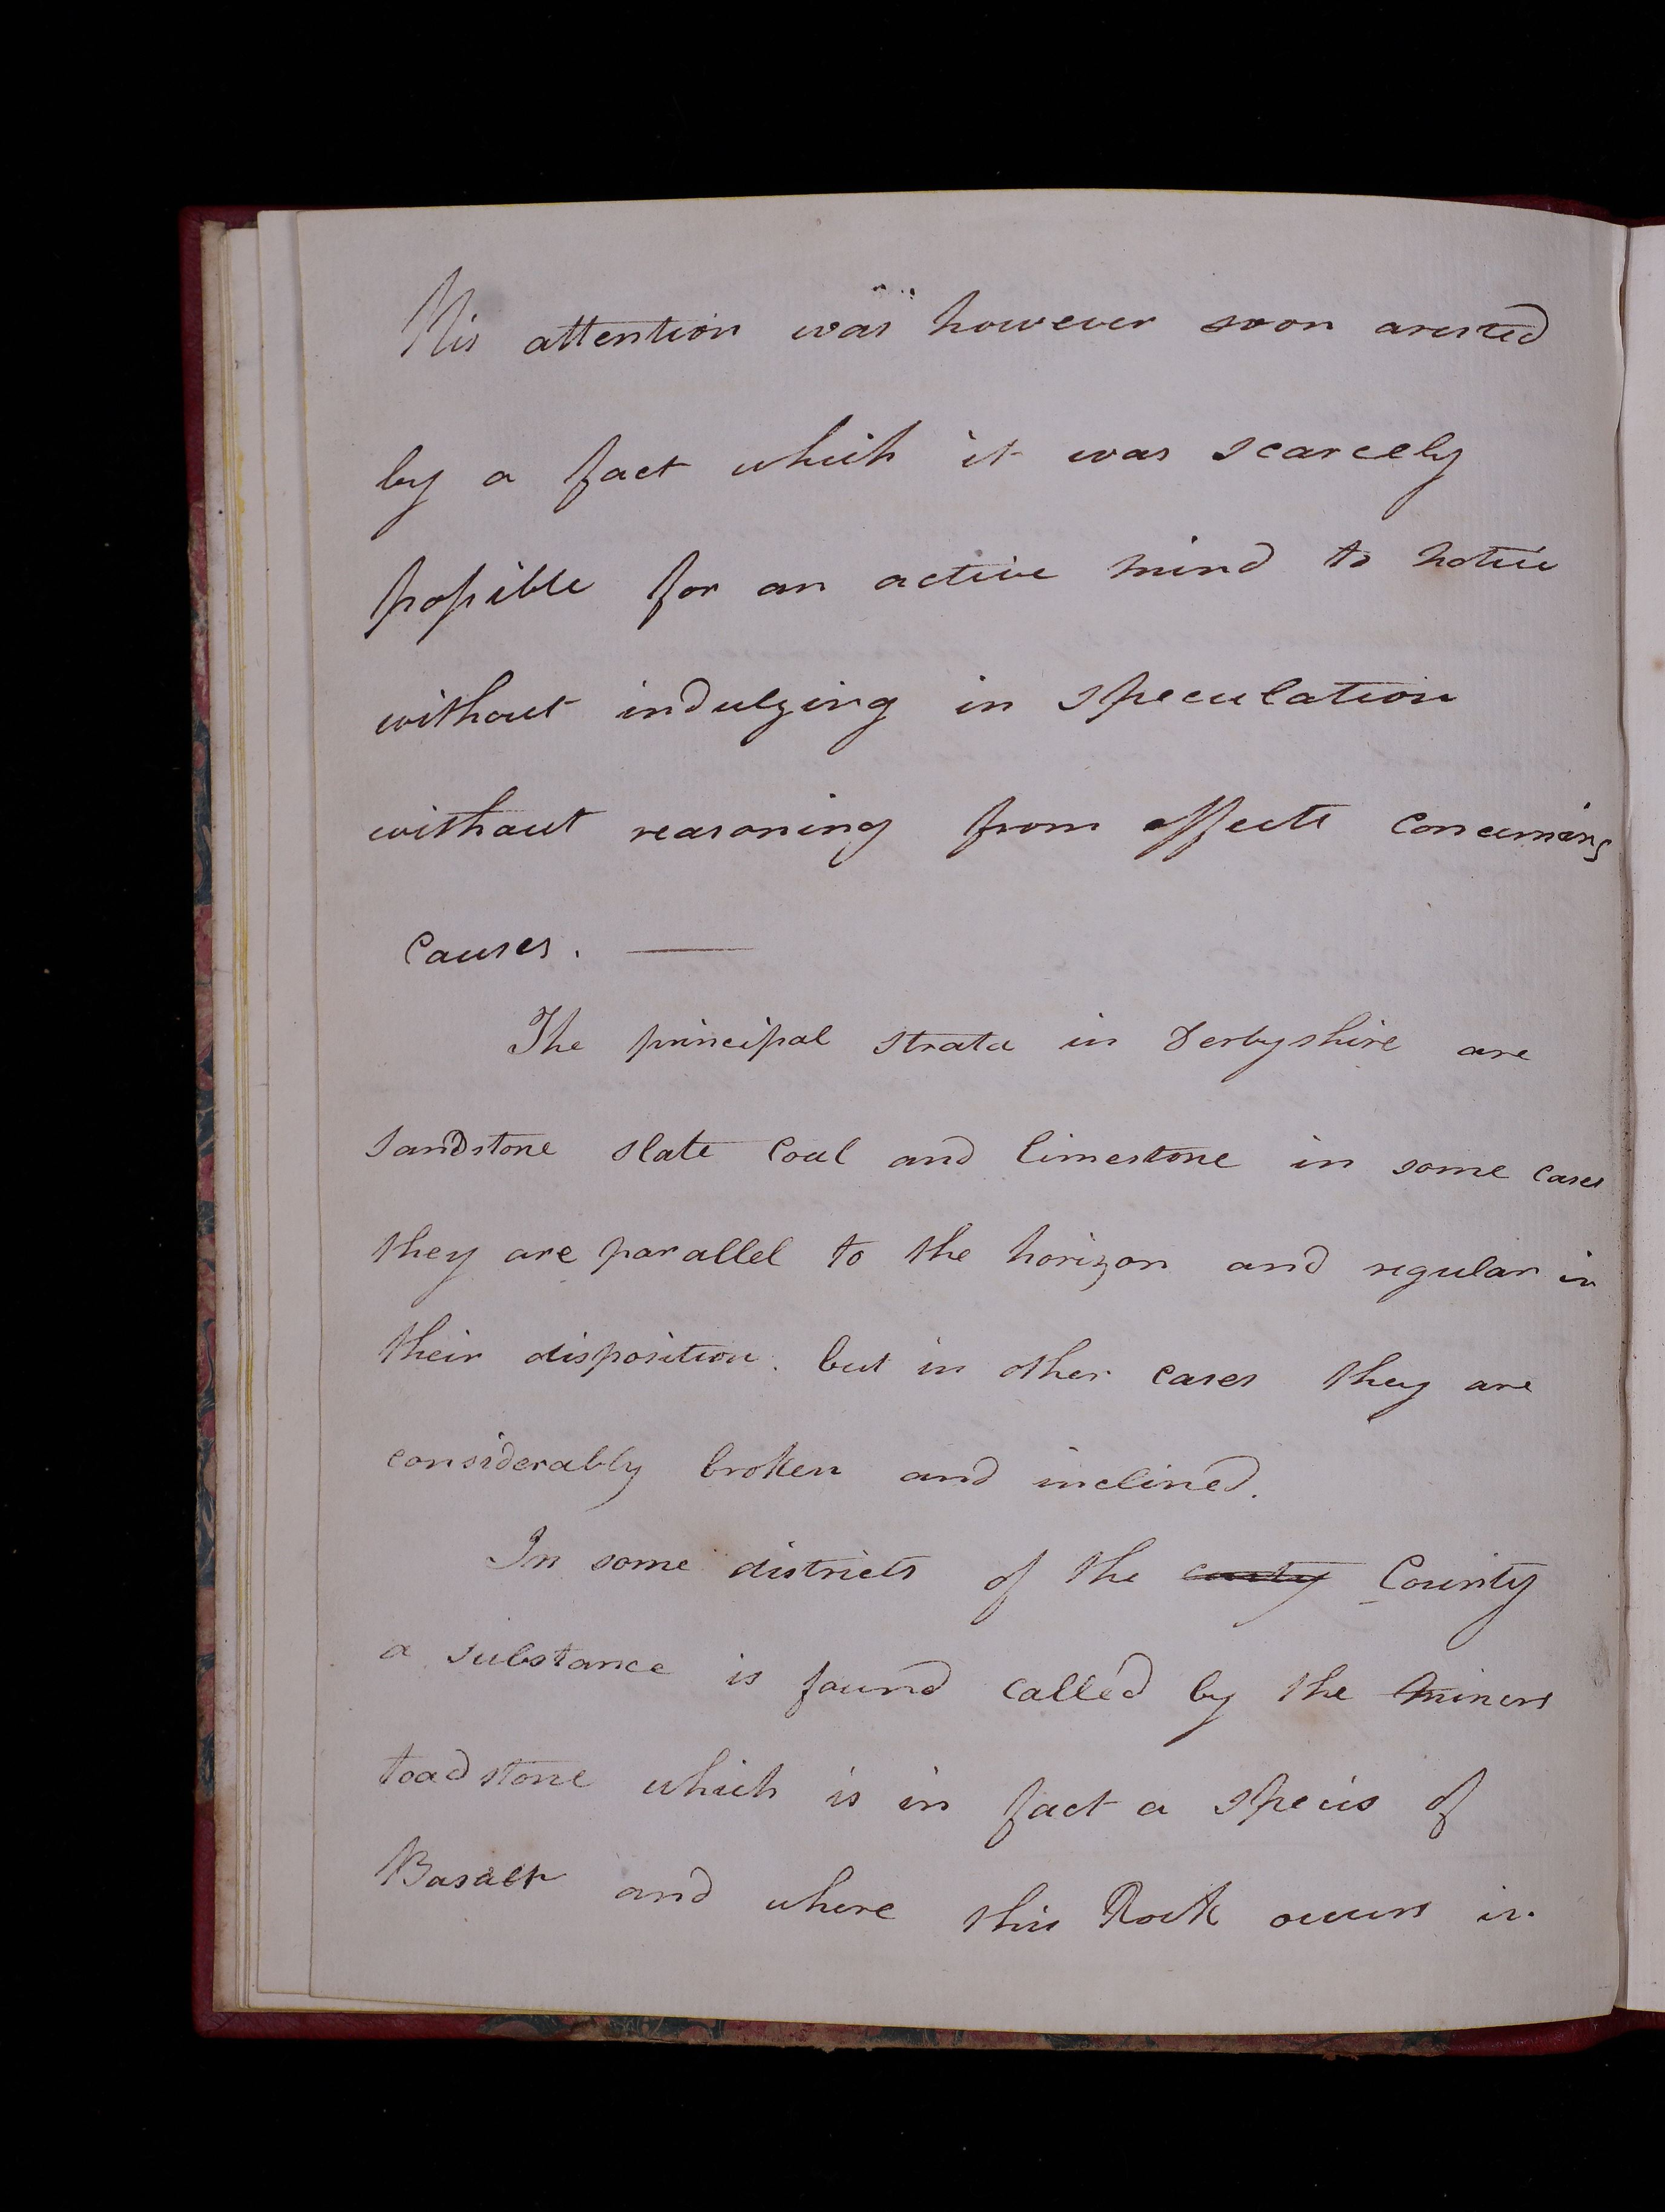 His attention was however soon arested
by a fact which it was scarcely
possible for an active mind to notice
without indulging in speculation
without reasoning from effects concerning
Causes. —
The principal strata in Derbyshire are
sandstone slate Coal and limestone in some cases
they are parallel to the horizon and regular in
their disposition. but in other cases they are
considerably broken and inclined.
In some districts of the County
a substance is found called by the miners
toadstone which is in fact a specis of
Basalt and where this Rock occurs in